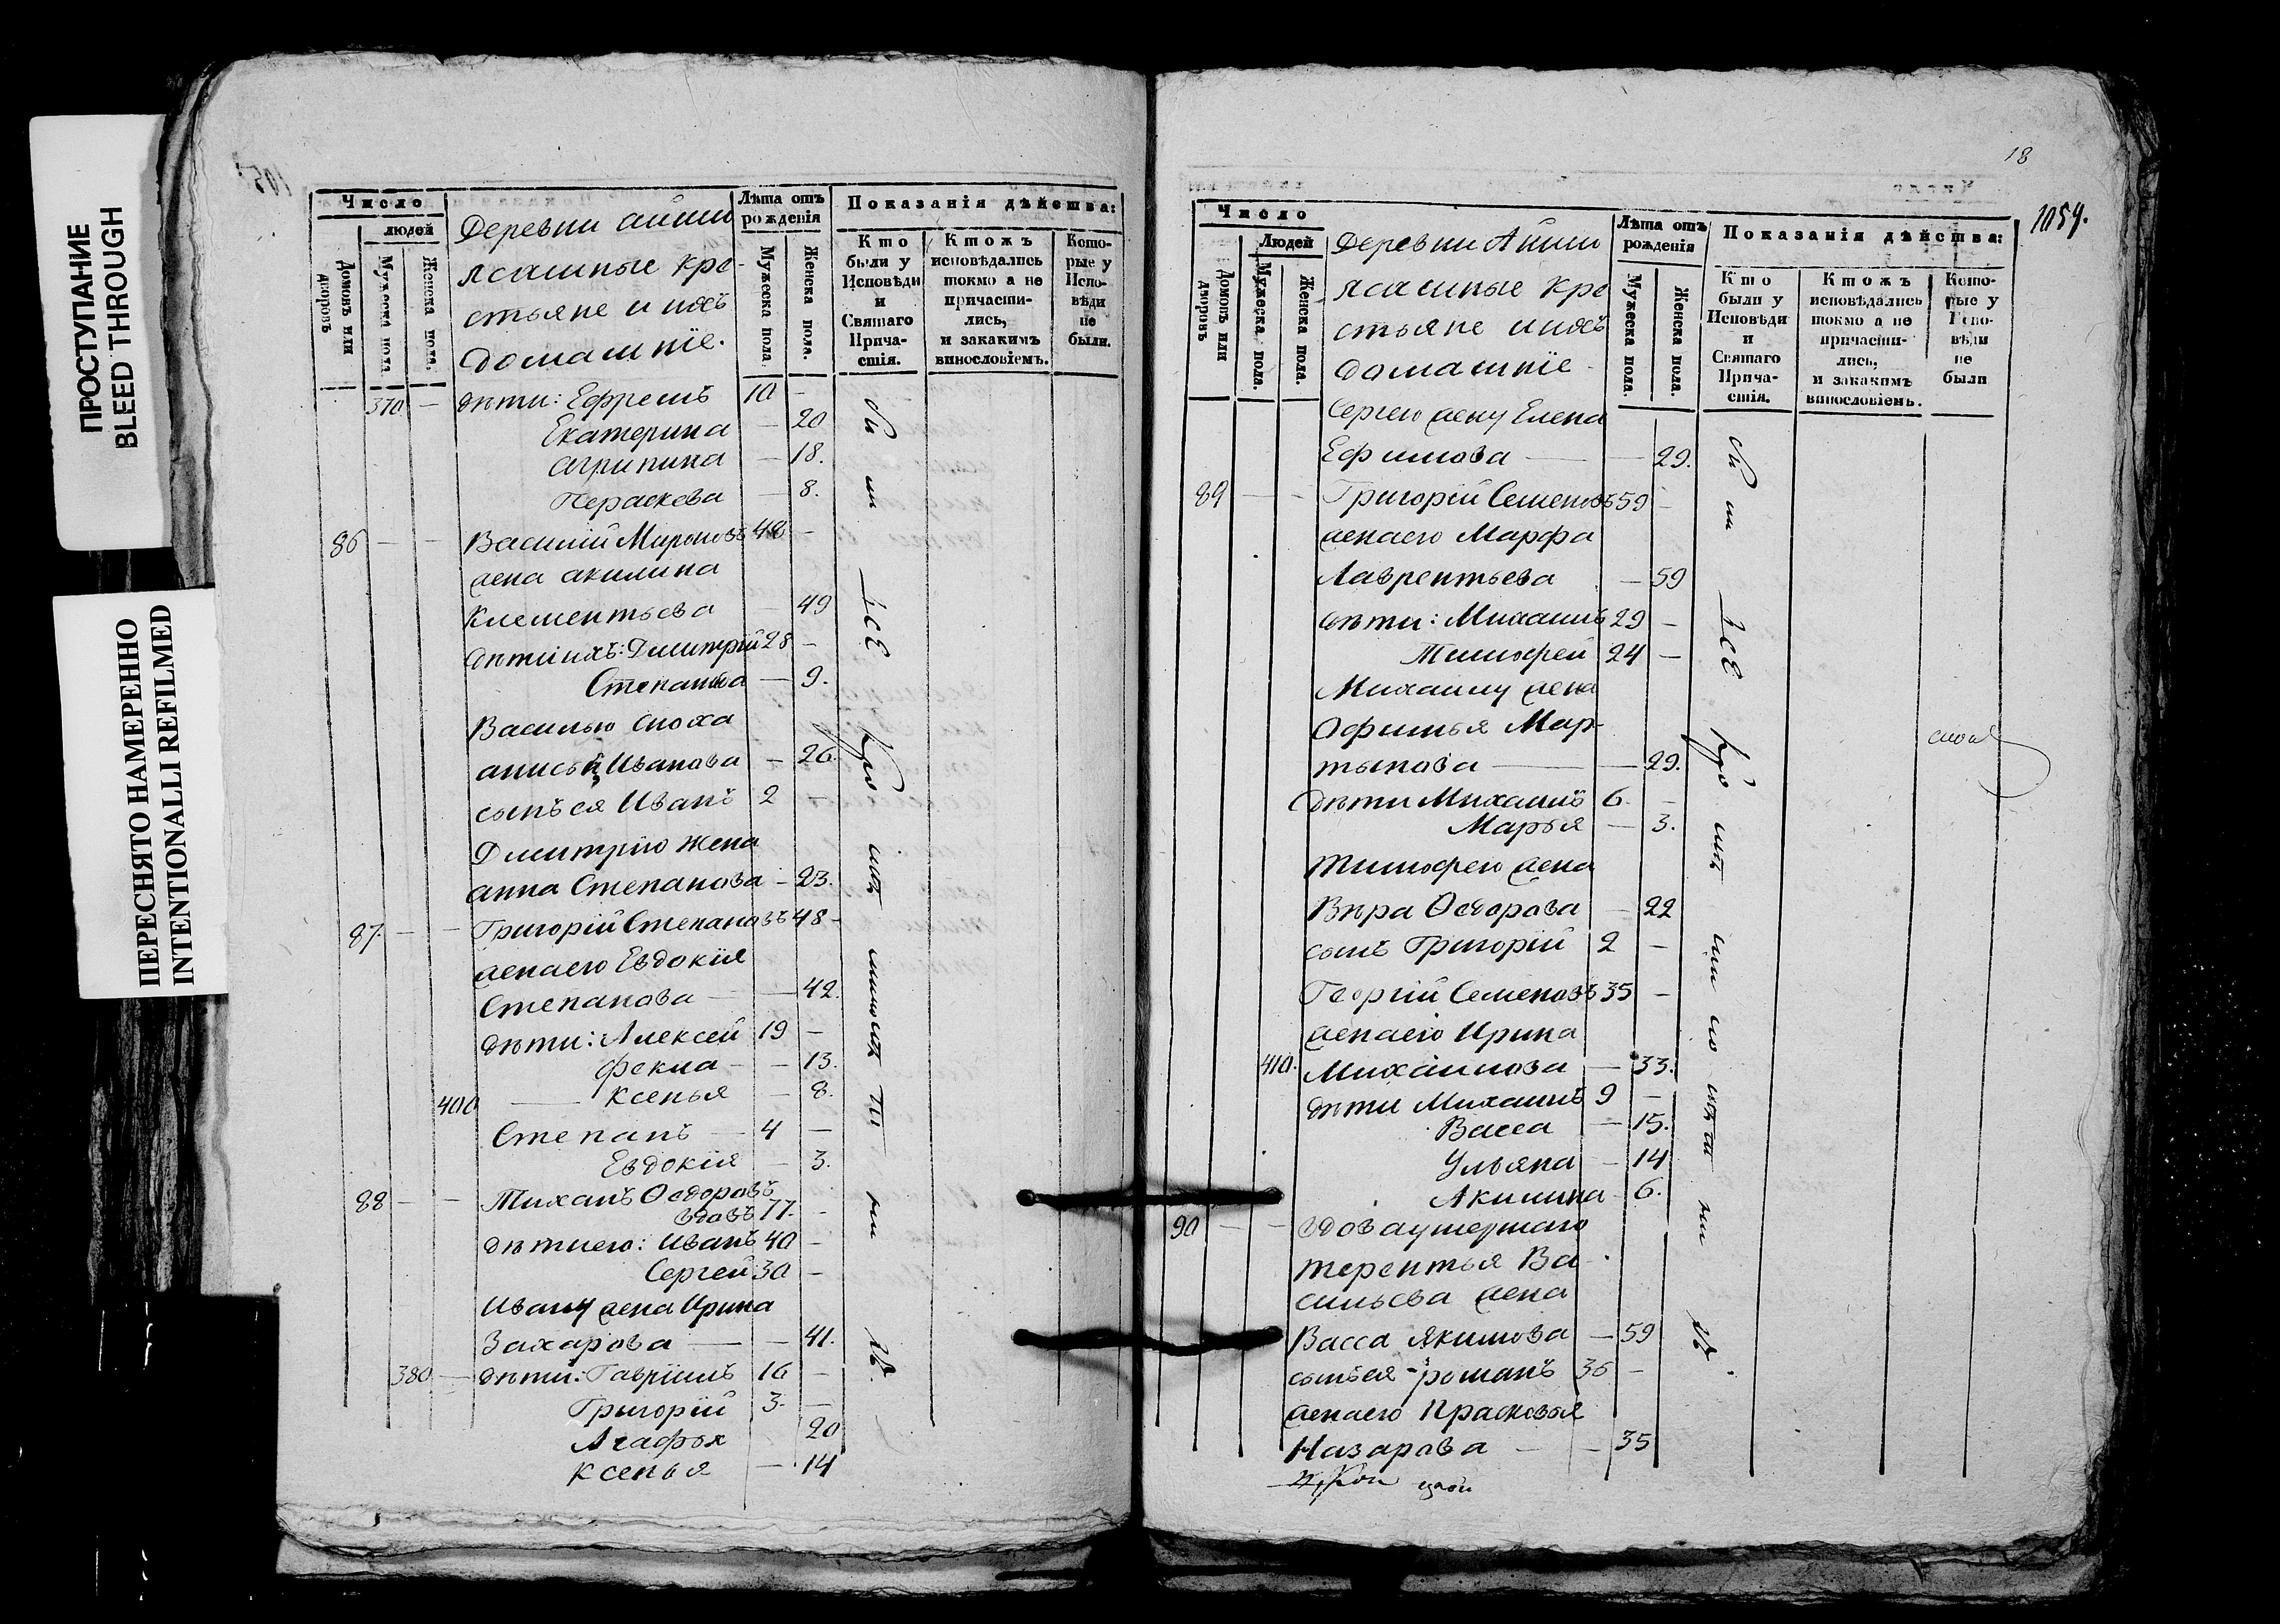 ПРОСТУПАНИЕ
BLEED THROUGH
ПЕРЕСНЯТО НАМЕРЕННО
INTENTIONALLI REFILMED
Число
людей
Домовъ или дворовъ
Мужеска пола
Женска пола.
Деревни айши
ясашные кре-
стьяне и ихъ
домашніе.
Лѣта отъ рожденія
Мужеска пола
Женска пола.
Показанія дѣйства:
Кто были у Исповѣди и Святаго Прича-стія.
Ктожъ исповѣдались токмо а не причасти-лись, и закакимъ винословіемъ.
Кото-рые у Испо-вѣди не были.
370 — дѣти: Ефремъ 10 —
Екатерина — 20
агрипина — 18.
Пераскева — 8.
86 — — Василій Мироновъ 48 —
жена акилина
Клементьева — 49
дѣти ихъ: Дмитрій 28 —
Степанида — 9.
Василью сноха
анисья Иванова — 26.
сынъ ея Иванъ 2 —
Дмитрію жена
анна Степанова — 23.
87. — — Григорій Степановъ 48 —
жена его Евдокія
Степанова — 42.
дѣти: Алексей 19 —
Фекла — 13.
400 — Ксенья — 8.
Степанъ — 4 —
Евдокія — 3.
88 — — Тиханъ Ѳедоровъ
вдовъ 77. —
дѣти его: Иванъ 40 —
Сергей 30 —
Ивану жена Ирина
Захарова — — 41.
380 — дѣти: Гаврiилъ 16 —
Григорій 3. —
Агафья 20
Ксенья — 14
18
1059.
Число
Людей
Домовъ или дворовъ
Мужеска пола.
Женска пола.
Деревни Айши
ясашные кре
стьяне и ихъ
домашніе
Лѣта отъ рожденія
Мужеска пола.
Женска пола.
Показанія дѣйства:
Кто были у Исповѣди и Святаго Прича-стія.
Ктожъ исповѣдались токмо а не причасти-лись, и закакимъ винословіемъ.
Кото-рые у Испо-вѣди не были
Сергею жену Елена
Ефимова — — 29.
89 — — Григорій Семеновъ 59 —
жена его Марфа
Лаврентьева — 59
дѣти: Михаилъ 29 —
Тимофей 24 —
Михаилу жена
Офимья Мар-
тынова — — 29.
дѣти Михаилъ 6. —
Марья — 3.
Тимофею жена
Вѣра Ѳедорова — 22
сынъ Григорій 2 —
Георгій Семеновъ 35 —
жена его Ирина
410. Михаилова — 33.
дѣти Михаилъ 9 —
Васса — 15.
Ульяна — 14
Акилина — 6.
90 — — вдова умершаго
терентья Ва-
сильева жена
Васса Якимова — 59
сынъ ея — романъ 36 —
жена его Прасковья
Назарова — — 35